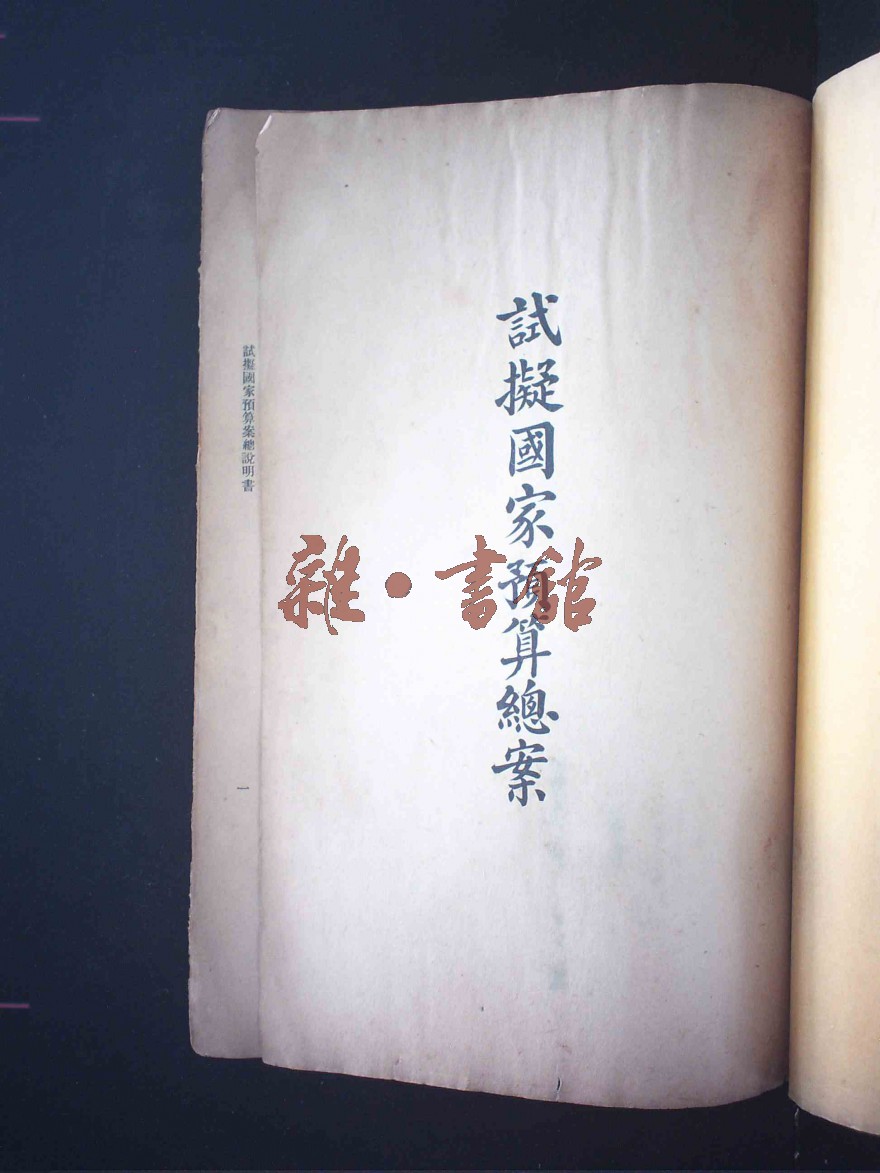 試擬國家預算總案
試擬國家預算案總說明書
一
雜·書館